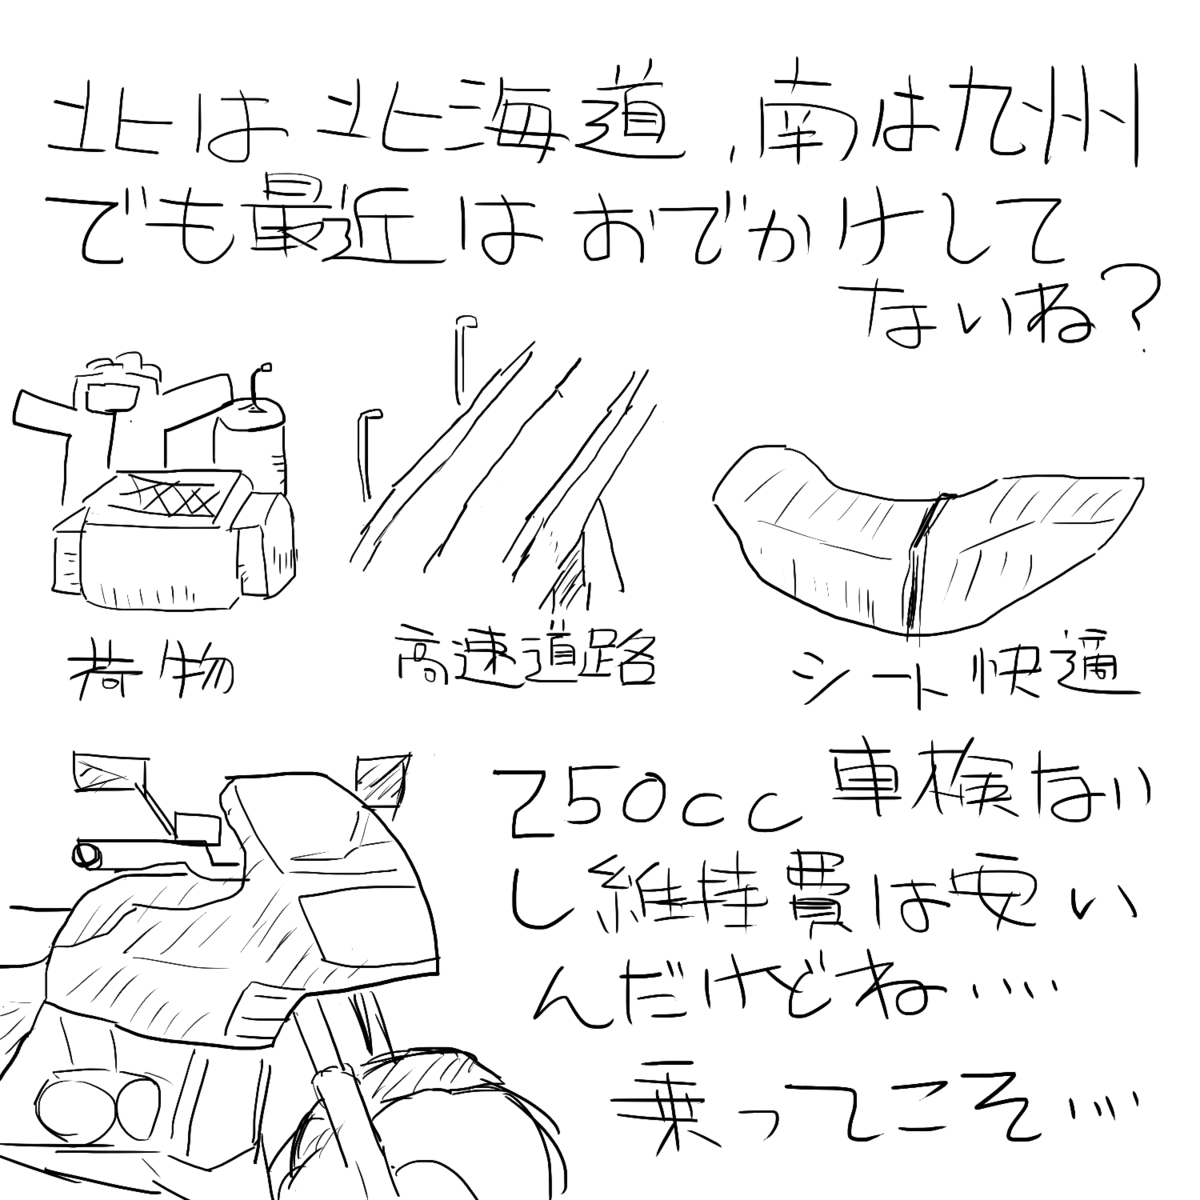 北は北海道、南は九州
でも最近はおでかけして
ないね?
荷物
高速道路
シート快適
250cc 車検ない
し維持費は安い
んだけどね・・・・
乗ってこそ・・・